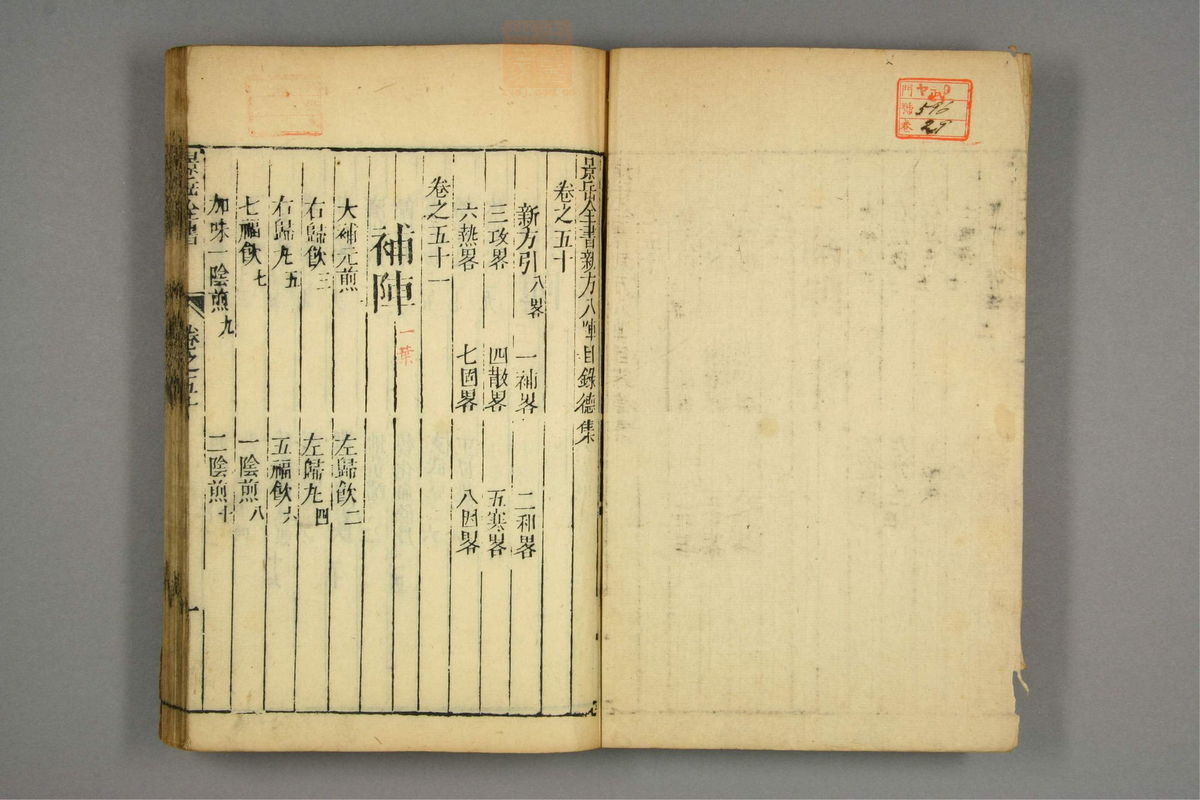 門 ヤ09
號 596
卷 29
景岳全書新方八陣目錄德集
卷之五十
新方引 八畧 一補畧 二和畧
三攻畧 四散畧 五寒畧
六熱畧 七固畧 八因畧
卷之五十一
補陣 一葉
大補元煎 左歸飲 二
右歸飲 三 左歸丸 四
右歸丸 五 五福飲 六
七福飲 七 一陰煎 八
加味一陰煎 九 二陰煎 十
景岳全書 卷之五十 一